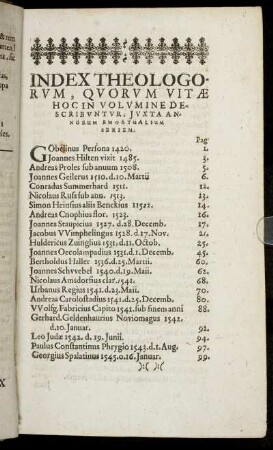 INDEX THEOLOGO-
RVM, QVORVM VITÆ
HOC IN VOLVMINE DE-
SCRIBVNTVR, JVXTA AN-
NORUM EMORTUALIUM
SERIEM.
Pag.
GObelinus Persona 1420. 1.
Joannes Hilten vixit 1485. 3.
Andreas Proles sub annum 1508. 5.
Joannes Geilerus 1510. d. 10. Martii 6.
Conradus Summerhard 1511. 12.
Nicolaus Russ sub ann. 1513. 23.
Simon Heinsius aliis Benckius 1522. 14.
Andreas Cnophius flor. 1523. 16.
Joannes Staupicius 1527. d. 28. Decemb. 17.
Jacobus VVimphelingus 1528. d. 17. Nov. 21.
Huldericus Zuinglius 1531. d. 11. Octob. 25.
Joannes Oecolampadius 1531. d. 1. Decemb. 45.
Bertholdus Haller 1536. d. 25. Martii. 60.
Joannes Schvvebel 1540. d. 19. Maii. 62.
Nicolaus Amsdorfius clar. 1542. 68.
Urbanus Regius 1541. d. 23. Maii. 70.
Andreas Carolostadius 1541. d. 25. Decemb. 80.
VVolfg. Fabricius Capito 1542. sub finem anni 88.
Gerhard. Geldenhaurius Noviomagus 1542.
d. 10. Januar. 92.
Leo Judæ 1542. d. 19. Junii. 94.
Paulus Constantinus Phrygio 1543. d. 1. Aug. 97.
Georgius Spalatinus 1545. 0. 16. Januar. 99.
)( )(